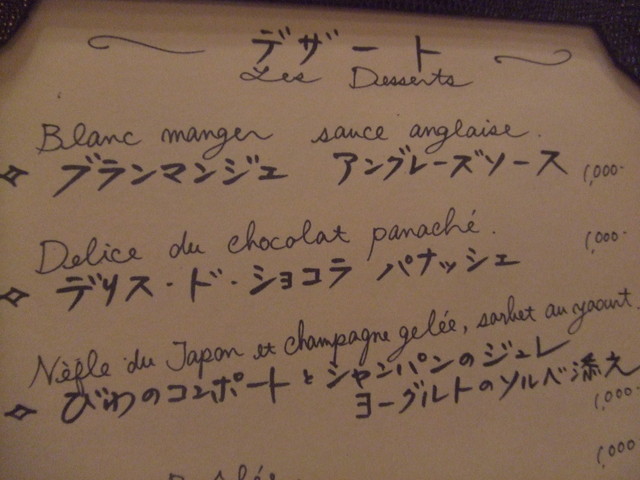 デザート
Les Desserts
Blanc manger sauce anglaise.
ブランマンジェ アングレーズソース 1,000-
Delice du chocolat panaché. 1,000-
デリス・ド・ショコラ パナッシェ
Nèfle du Japon et champagne gelée, sorbet au yaourt.
びわのコンポートとシャンパンのジュレ
ヨーグルトのソルベ添え 1,000-
1,000